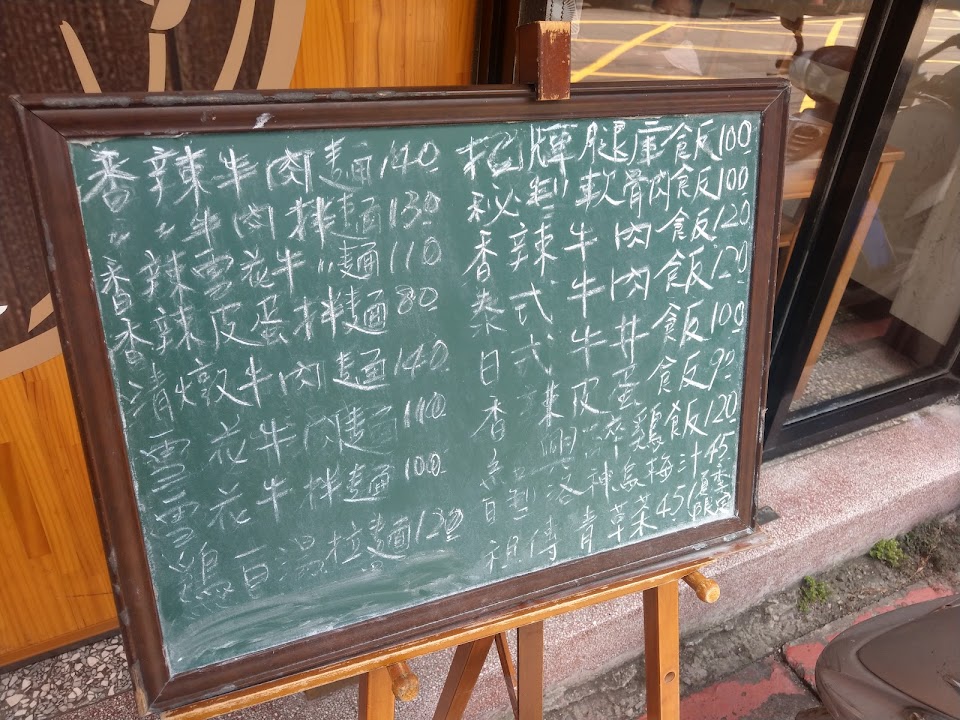 香辣牛肉麵 140
〃〃牛肉拌麵 130
香辣雪花牛〃麵 110
香辣皮蛋拌麵 80
清燉牛肉麵 140
雪花牛肉麵 110
雪花牛拌麵 100
鷄白湯拉麵 120
招牌腿庫飯 100
秘製軟骨肉飯 100
香辣牛肉飯 120
泰式牛肉飯 120
日式牛丼飯 100
香辣皮蛋飯 90
紹興醉鷄飯 120
自製洛神烏梅汁 45
祖傳青草茶 45
夏季限定